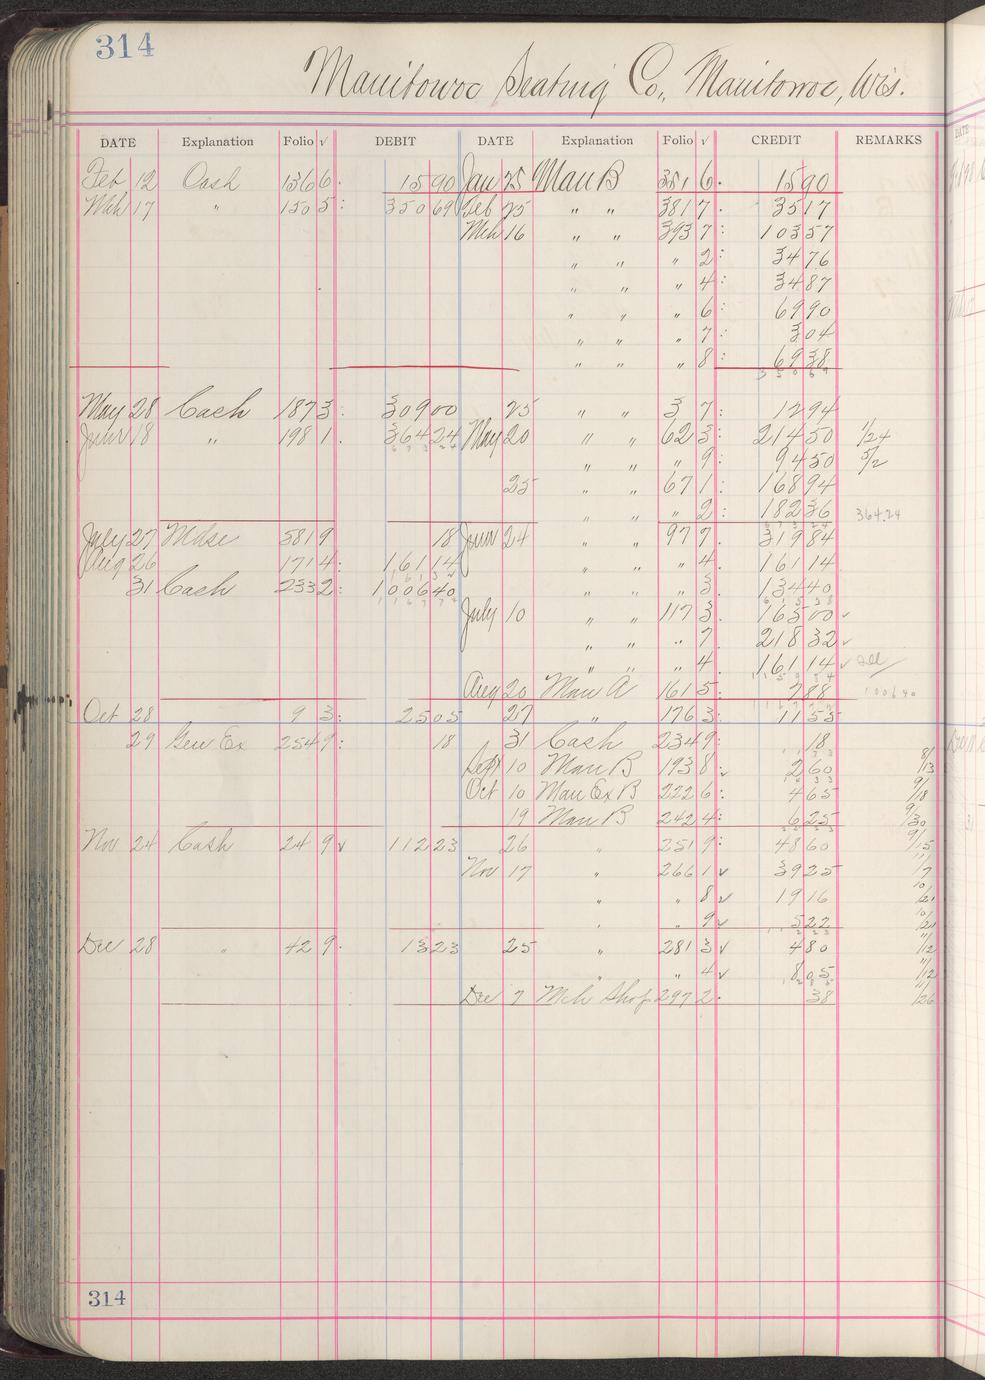 314
Manitowoc Seating Co., Manitowoc, Wis.
DATE Explanation Folio √ DEBIT DATE Explanation Folio √ CREDIT REMARKS
Feb 12 Cash 136 6. 15 90 Jan 25 Man B 351 6. 15 90
Mch 17 " 150 5: 350 69 Feb 25 " " 381 7. 35 17
Mch 16 " " 393 7: 103 57
" " " 2: 34 76
" " " 4: 34 87
" " " 6: 69 90
" " " 7: 3 04
" " " 8: 69 38
350 69
May 28 Cash 187 3: 309 00 25 " " 3 7: 12 94
June 18 " 198 1. 364 24 May 20 " " 62 3: 214 50 1/24
673 24
" " " 9: 94 50 5/2
25 " " 67 1: 168 94
" " " 2: 182 36 364.24
673 24
July 27 Mdse 581 9 18 June 24 " " 97 7. 319 84
Aug 26 171 4: 161 14 " " " 4. 161 14
31 Cash 233 2: 1006 40 " " " 3 134 40
July 10 " " 117 3. 165 00 ✓
" " " 7. 218 32 ✓
" " " 4 161 14 ✓
Aug 20 Man A 161 5: 7 88 1006 40
Oct 28 9 3: 25 05 27 " 176 3: 11 55
29 Gen Ex 254 9: 18 31 Cash 234 9: 18
Sept 10 Man B 193 8: ✓ 2 60 8/13
Oct 10 Man Ex B 222 6: 4 65 9/18
19 Man B 242 4: 6 25 9/30
Nov 24 Cash 24 9 ✓ 112 23 26 " 251 9: 48 60 9/15
Nov 17 " 266 1 ✓ 39 25 11/7
" " 8 ✓ 19 16 10/21
" " 9 ✓ 5 22 10/21
112 23
Dec 28 " 42 9. 13 23 25 " 281 3 ✓ 4 80 11/12
" " 4 ✓ 8 05 11/12
Dec 7 Mch Shop 297 2. 38 11/26
314